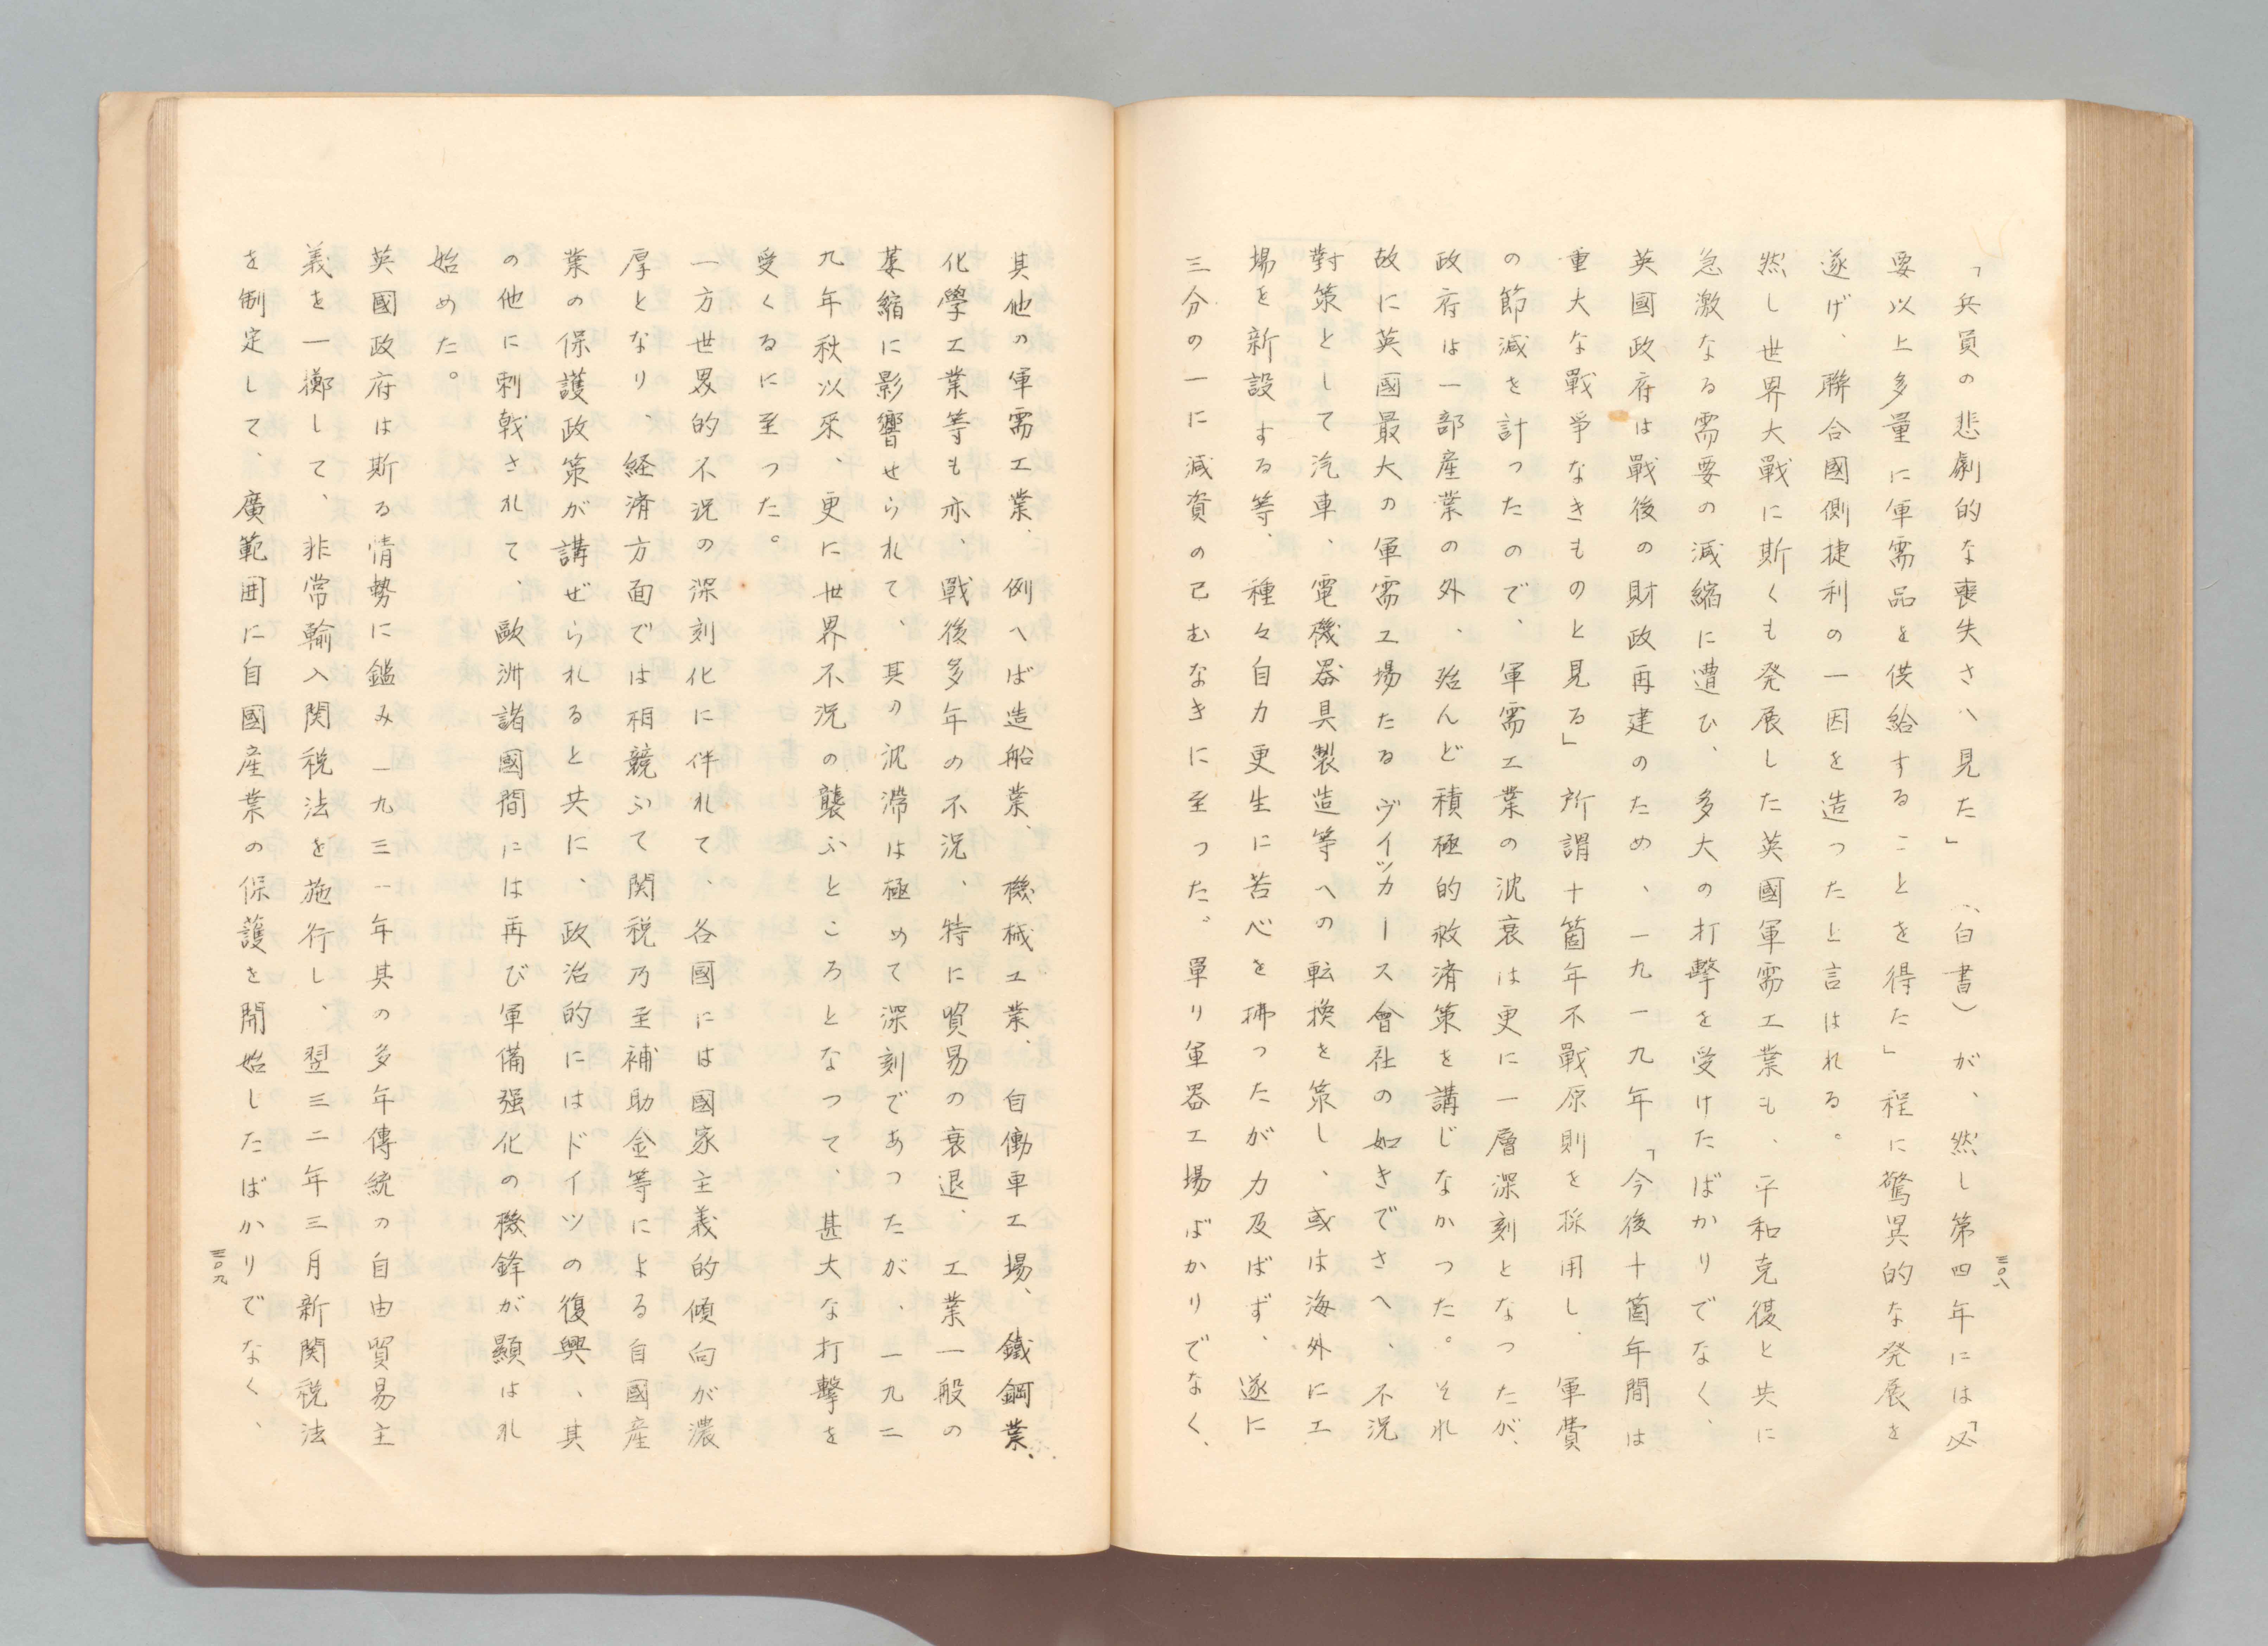 「兵員の悲劇的な喪失さへ見た」（白書）が、然し第四年には「必
要以上多量に軍需品を供給することを得た」程に驚異的な発展を
遂げ、聯合國側捷利の一因を造つたと言はれる。
然し世界大戰に斯くも発展した英國軍需工業も、平和克復と共に
急激なる需要の減縮に遭ひ、多大の打擊を受けたばかりでなく、
英國政府は戰後の財政再建のため、一九一九年「今後十箇年間は
重大な戰爭なきものと見る」所謂十箇年不戰原則を採用し、軍費
の節減を計つたので、軍需工業の沈衰は更に一層深刻となつたが、
政府は一部産業の外、殆んど積極的救済策を講じなかつた。それ
故に英國最大の軍需工場たるヴイッカース會社の如きでさへ、不況
對策として汽車、電機器具製造等への転換を策し、或は海外に工
場を新設する等、種々自力更生に苦心を拂つたが力及ばず、遂に
三分の一に減資の已むなきに至つた。單り軍器工場ばかりでなく、
三〇八
其他の軍需工業、例へば造船業、機械工業、自働車工場、鐵鋼業、
化學工業等も亦、戰後多年の不況、特に貿易の衰退、工業一般の
萎縮に影響せられて、其の沈滯は極めて深刻であつたが、一九二
九年秋以來、更に世界不況の襲ふところとなつて、甚大な打擊を
受くるに至つた。
一方世界的不況の深刻化に伴れて、各國には國家主義的傾向が濃
厚となり、経済方面では相競ふて関税乃至補助金等による自國産
業の保護政策が講ぜられると共に、政治的にはドイツの復興、其
の他に刺戟されて、歐洲諸國間には再び軍備强化の機鋒が顯はれ
始めた。
英國政府は斯る情勢に鑑み一九三一年其の多年傳統の自由貿易主
義を一擲して、非常輸入関税法を施行し、翌三二年三月新関税法
を制定して、廣範囲に自國産業の保護を開始したばかりでなく、
三〇九